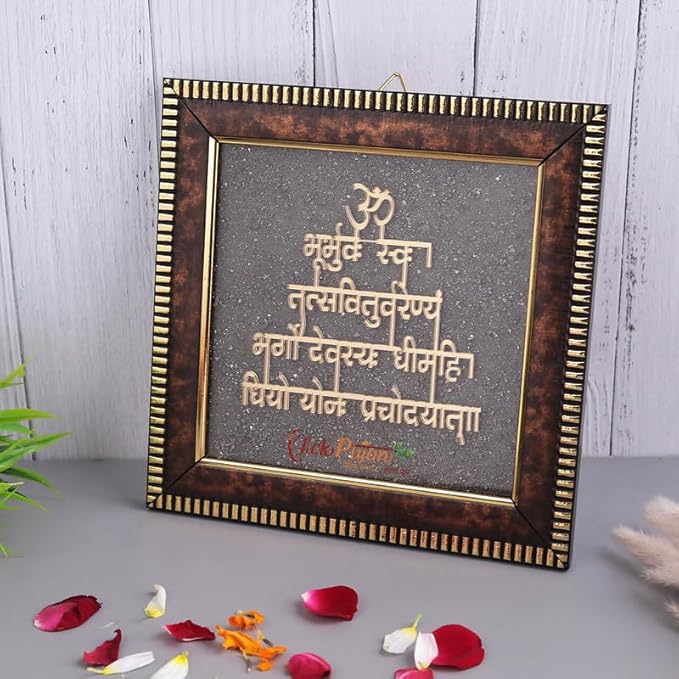 ॐ
भूर्भुवः स्वः।
तत्सवितुर्वरेण्यं
भर्गो देवस्यः धीमहि।
धियो योनः प्रचोदयात॥